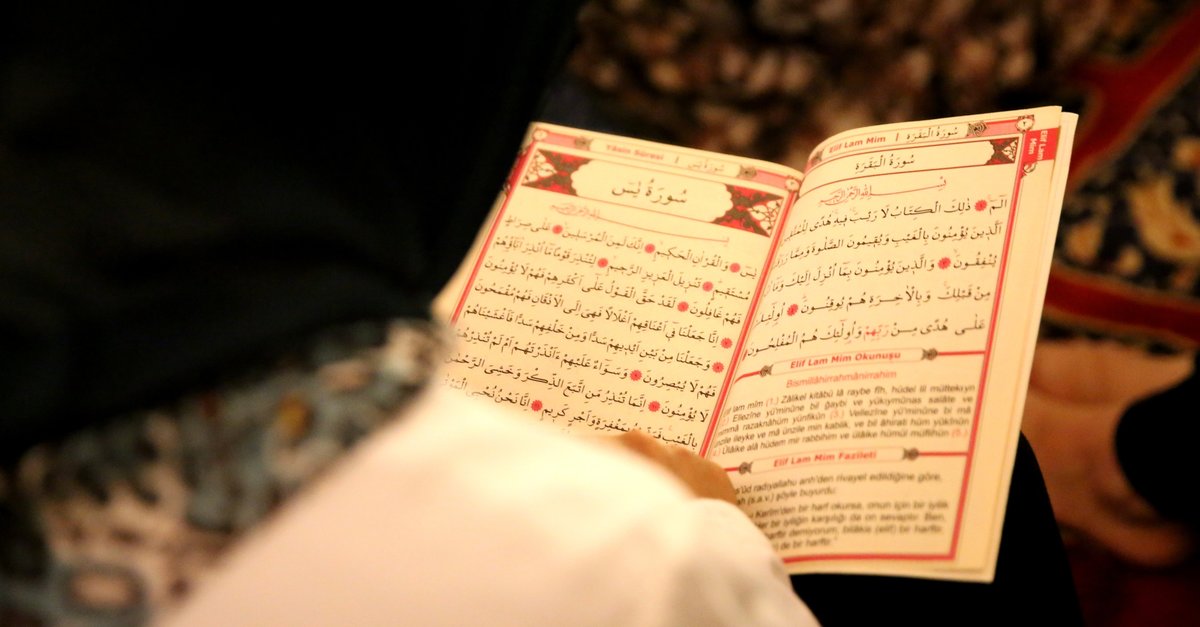 سُورَةُ الْبَقَرَةِ | Elif Lam Mim
٢
Elif Lam
Mim
سُورَةُ الْبَقَرَةِ
بِسْمِ اللّٰهِ الرَّحْمٰنِ الرَّحِيمِ
الٓمٓ ذٰلِكَ الْكِتَابُ لَا رَيْبَ فِيهِ هُدًى لِلْمُتَّقِينَ
الَّذِينَ يُؤْمِنُونَ بِالْغَيْبِ وَيُقِيمُونَ الصَّلٰوةَ وَمِمَّا
يُنْفِقُونَ وَالَّذِينَ يُؤْمِنُونَ بِمَا أُنْزِلَ إِلَيْكَ وَمَا
مِنْ قَبْلِكَ وَبِالْاٰخِرَةِ هُمْ يُوقِنُونَ أُولٰئِكَ
عَلٰى هُدًى مِنْ رَبِّهِمْ وَأُولٰئِكَ هُمُ الْمُفْلِحُونَ
Elif Lam Mim Okunuşu
Bismillâhirrahmânirrahîm
lam mîm (1.) Zâlikel kitâbü lâ raybe fîh, hüdel lil müttekıyn
Ellezine yü'minûne bil ğaybi ve yükıymûnas salâte ve
razaknâhüm yünfikûn (3.) Vellezîne yü'minûne bi mâ
ünzile ileyke ve mâ ünzile min kablik, ve bil âhirati hüm yûkînûn
Ülâike alâ hüdem mir rabbihim ve ülâike hümül müflihûn (5.)
Elif Lam Mim Fazileti
radıyallahu anh'den rivayet edildiğine göre,
(s.a.v.) şöyle buyurdu:
Kerîm'den bir harf okursa, onun için bir iyilik
bir iyiliğin karşılığı da on sevaptır. Ben,
harftir demiyorum, bilâkis (elif) bir harftir.
de bir harftir."
Yâsin Sûresi | سُورَةُ يٰسٓ
سُورَةُ يٰسٓ
بِسْمِ اللّٰهِ الرَّحْمٰنِ الرَّحِيمِ
يٰسٓ وَالْقُرْاٰنِ الْحَكِيمِ إِنَّكَ لَمِنَ الْمُرْسَلِينَ عَلٰى صِرَاطٍ
مُسْتَقِيمٍ تَنْزِيلَ الْعَزِيزِ الرَّحِيمِ لِتُنْذِرَ قَوْمًا مَا أُنْذِرَ اٰبَاؤُهُمْ
فَهُمْ غَافِلُونَ لَقَدْ حَقَّ الْقَوْلُ عَلٰى أَكْثَرِهِمْ فَهُمْ لَا يُؤْمِنُونَ
إِنَّا جَعَلْنَا فِي أَعْنَاقِهِمْ أَغْلَالًا فَهِيَ إِلَى الْأَذْقَانِ فَهُمْ مُقْمَحُونَ
وَجَعَلْنَا مِنْ بَيْنِ أَيْدِيهِمْ سَدًّا وَمِنْ خَلْفِهِمْ سَدًّا فَأَغْشَيْنَاهُمْ
فَهُمْ لَا يُبْصِرُونَ وَسَوَاءٌ عَلَيْهِمْ ءَأَنْذَرْتَهُمْ أَمْ لَمْ تُنْذِرْهُمْ
لَا يُؤْمِنُونَ إِنَّمَا تُنْذِرُ مَنِ اتَّبَعَ الذِّكْرَ وَخَشِيَ الرَّحْمٰنَ
بِالْغَيْبِ فَبَشِّرْهُ بِمَغْفِرَةٍ وَأَجْرٍ كَرِيمٍ إِنَّا نَحْنُ نُحْيِي